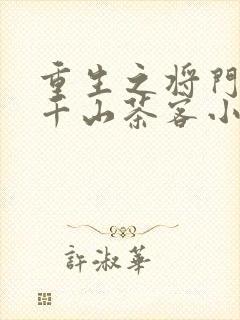 重生之将門
千山茶客小
許淑華